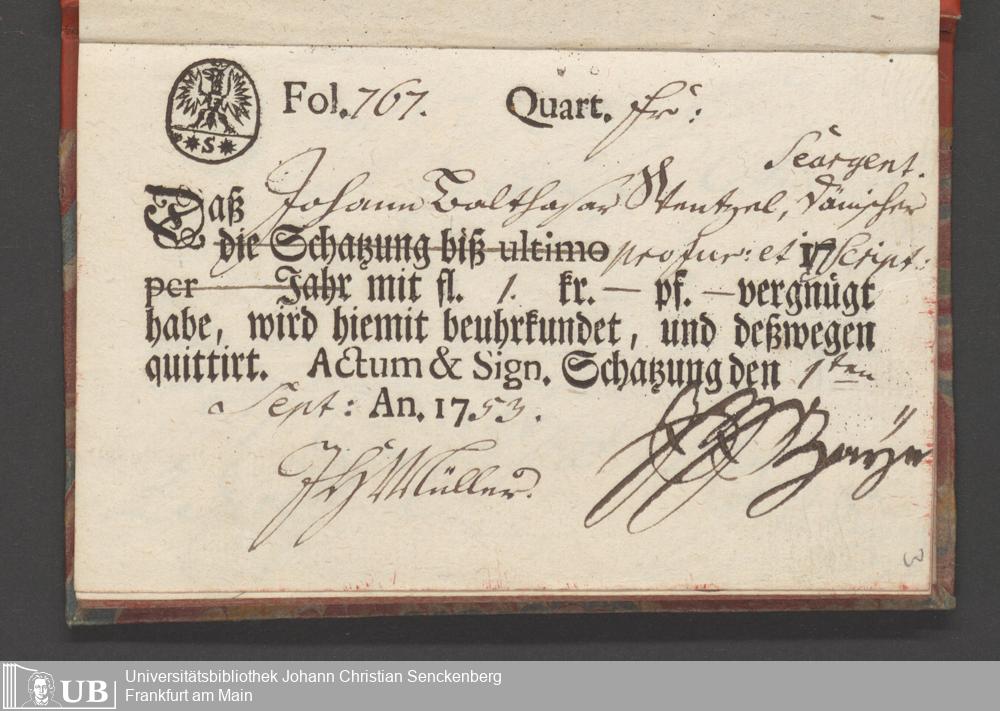 Fol. 767. Quart. fr:
Seargent.
Daß Johann Balthasar Wentzel, Dänischer
die Schatzung biß ultimo pro jur: et 17 Script:
per Jahr mit fl. 1. kr. — pf. — vergnügt
habe, wird hiemit beuhrkundet, und deßwegen
quittirt. Actum & Sign. Schatzung den 1ten
Sept: An. 1753.
JH Müller.
3
*S*
Universitätsbibliothek Johann Christian Senckenberg
UB Frankfurt am Main